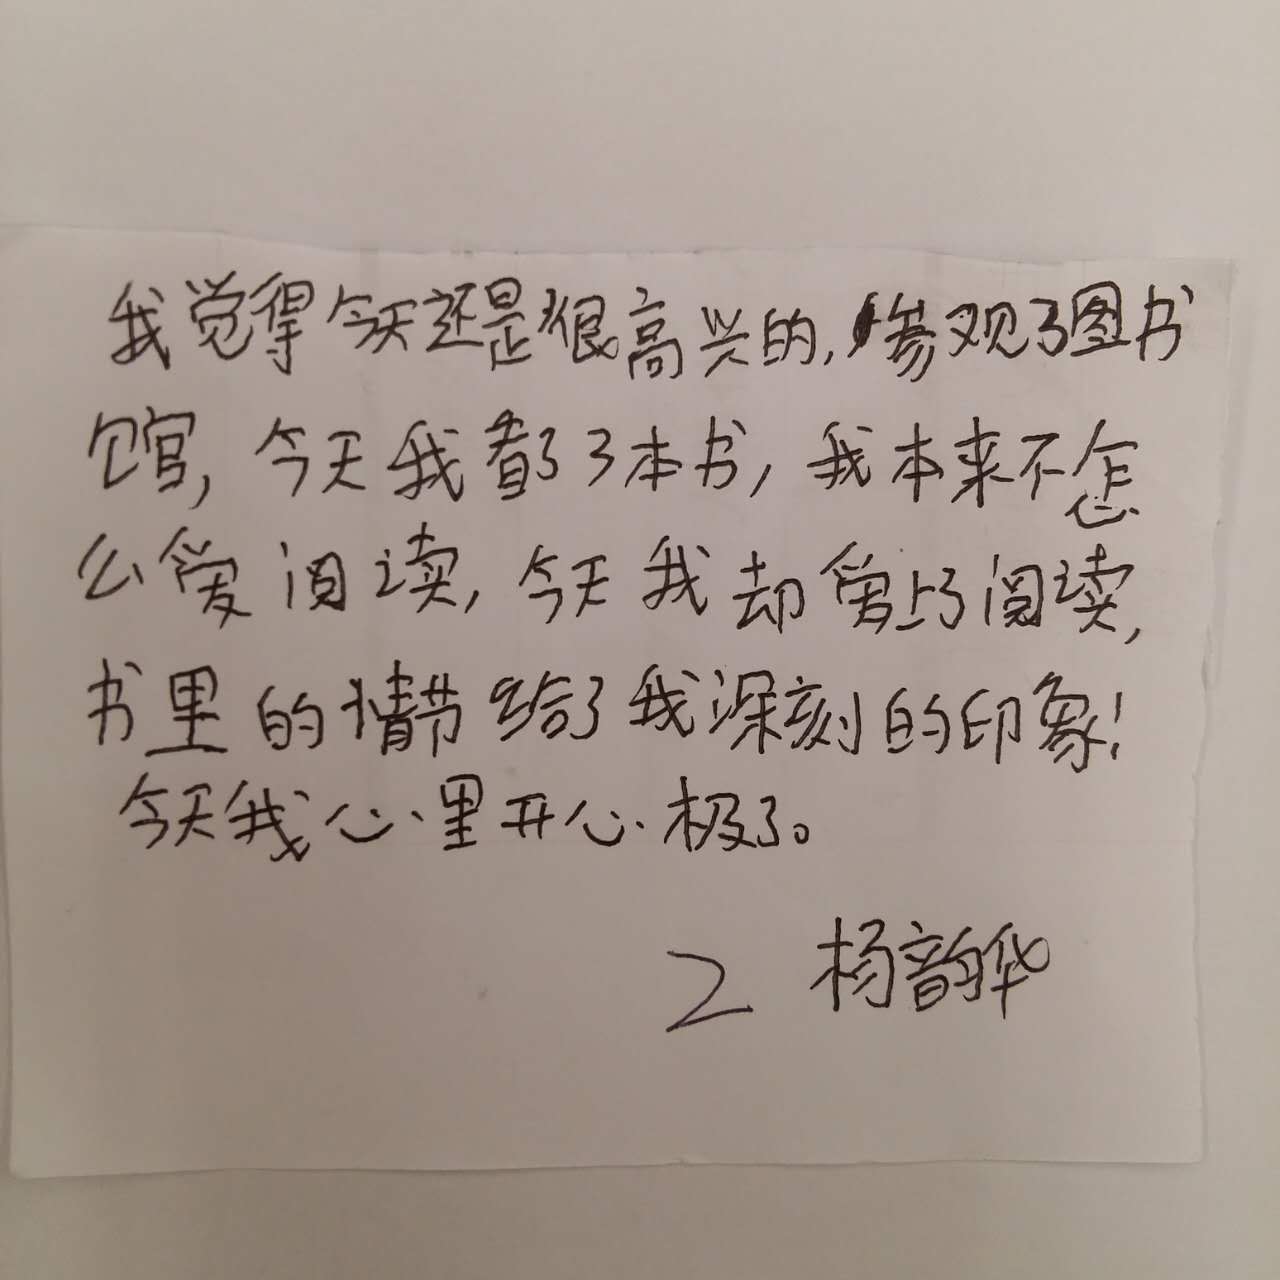 我觉得今天还是很高兴的,参观了图书
馆,今天我看了3本书,我本来不怎
么爱阅读,今天我却爱上了阅读,
书里的情节给了我深刻的印象!
今天我心里开心极了。
2 杨韵华